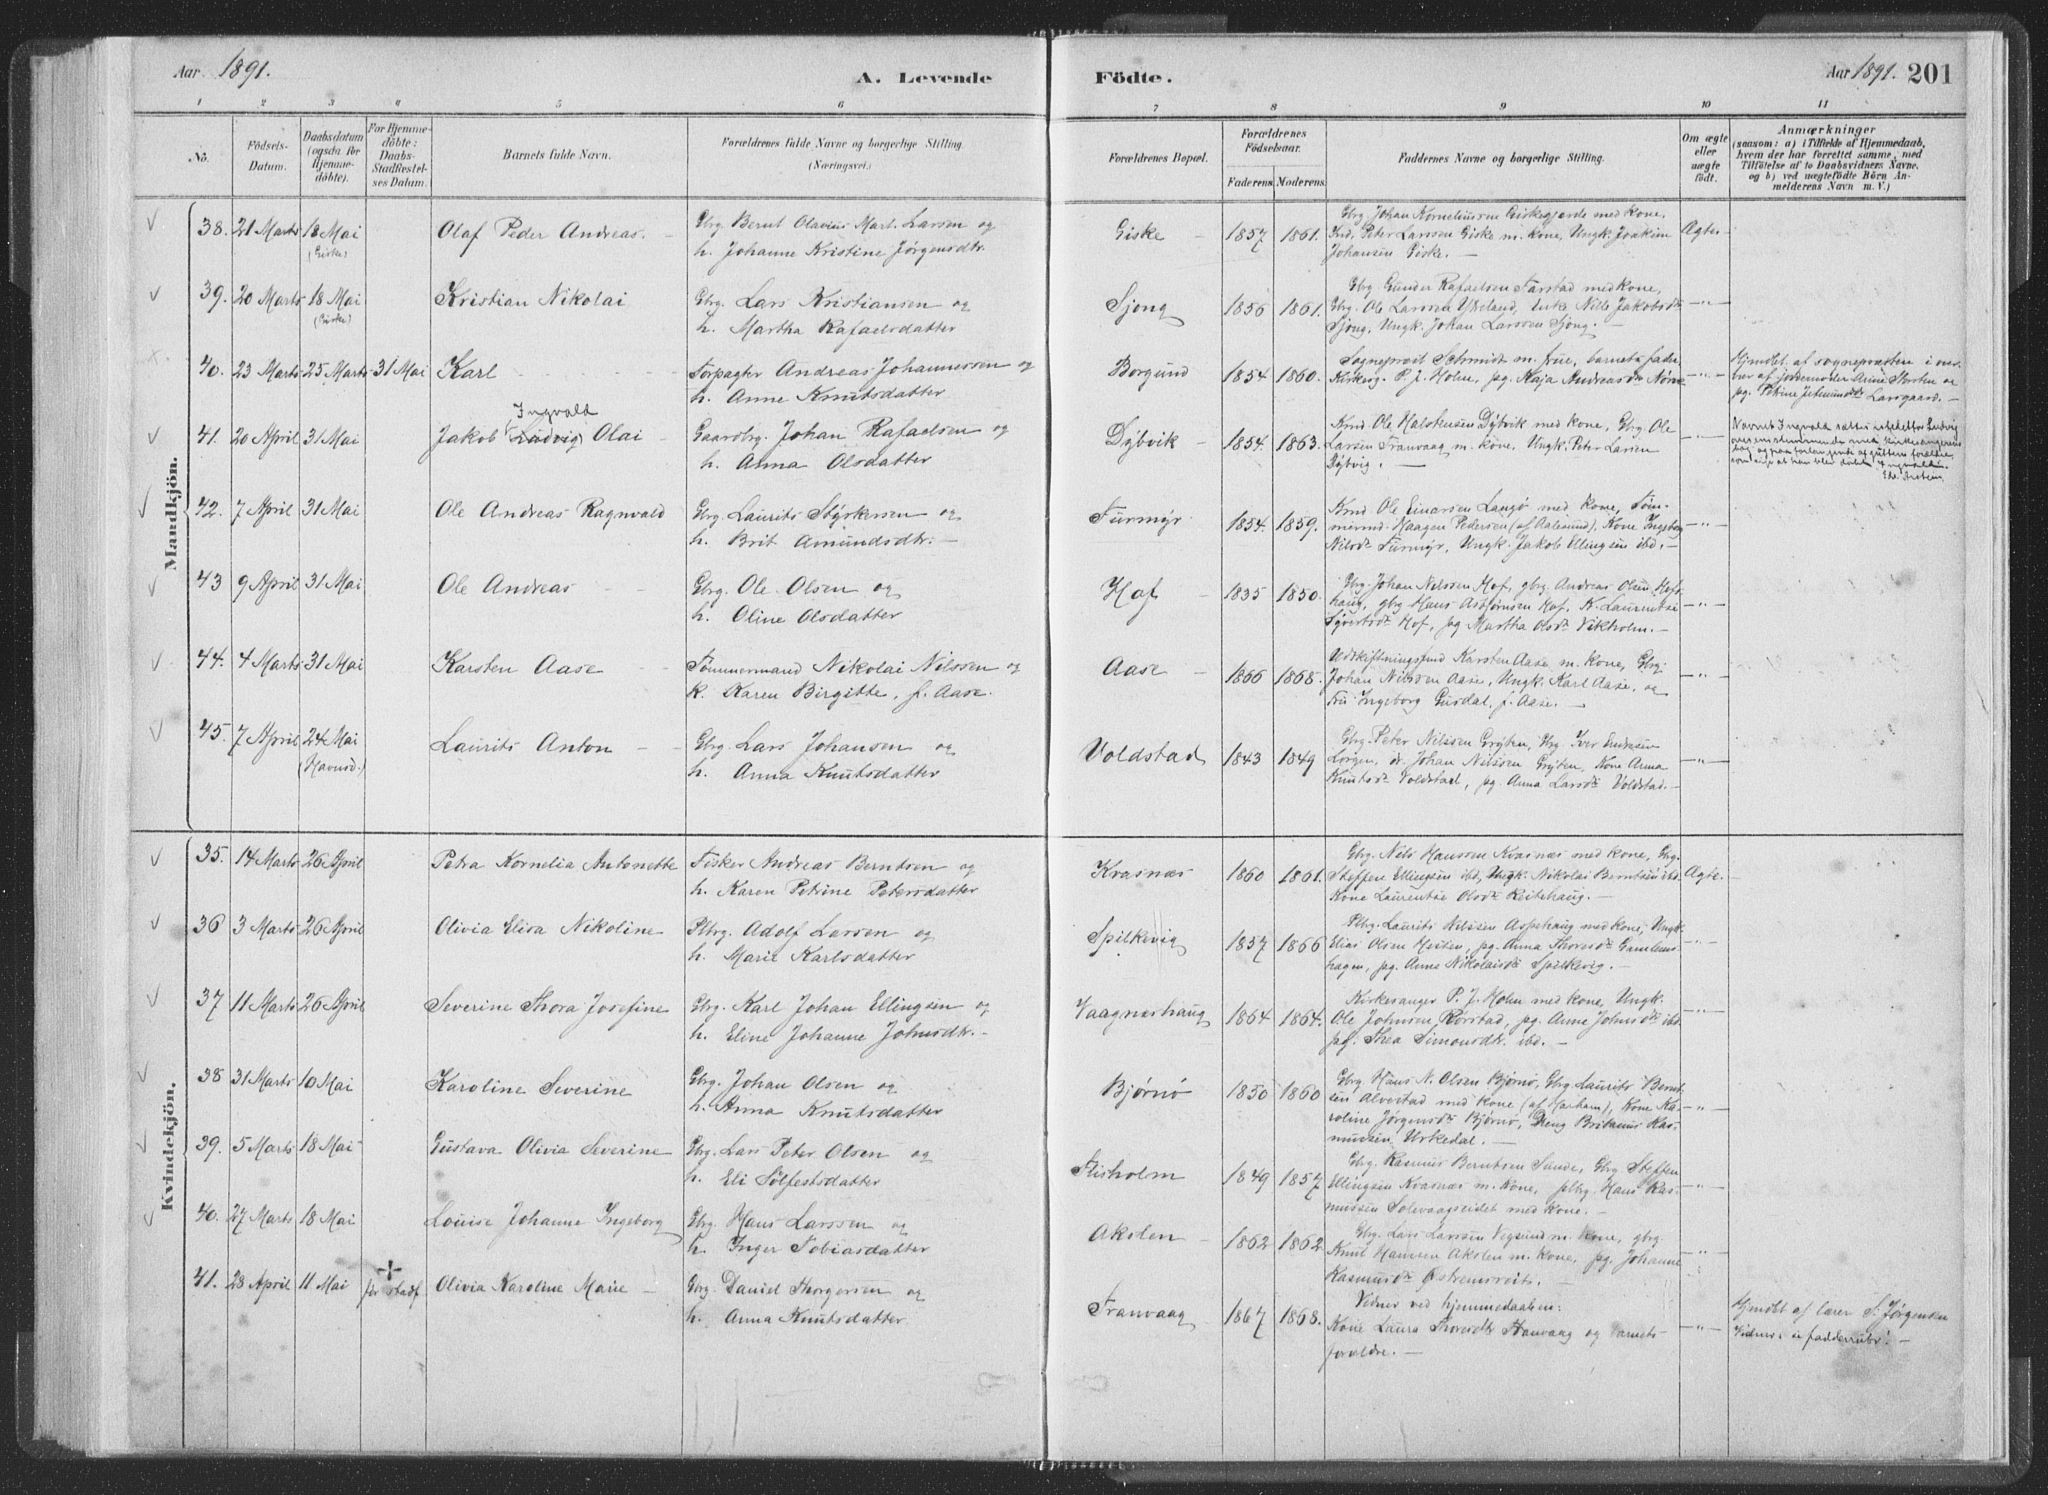 Aar 1891.
A. Levende
Födte.
Aar 1891. 201
1 2 3 4 5 6 7 8 9 10 11
No.
Födsels-Datum.
Daabsdatum (ogsda for Hjemme-döbte).
For Hjemme-döbte: Daabs-Stadfæstel-ses Datum.
Barnets fulde Navn.
Forældrenes fulde Navne og borgerlige Stilling.
(Næringsvei.)
Forældrenes Bopæl.
Forældrenes Födselsaar.
Faderens Moderens
Faddernes Navne og borgerlige Stilling.
Om ægte eller uægte födt.
Anmærkninger
(saasom: a) i Tilfælde af Hjemmedaab,
hvem der har forrettet samme, med
Tilföielse af to Daabsvidners Navne,
og b) ved uægtefödte Börn An-
melderens Navn m. V.)
Mandkjön.
38. 21 Marts 18 Mai (Giske) Olaf Peder Andreas. Gbrg Bernt Olavius Mart. Larsen og
h. Johanne Kristine Jørgensdtr.
Giske 1857 1861. Gbrg Johan Korneliussen Giskegjerde med kone,
Peter Larssen Giske m. kone, Ungk. Joakim
Johansen Giske. Ægte
39. 20 Marts 18 Mai (Giske) Kristian Nikolai Gbrg. Lars Kristiansen og
h. Martha Rafaelsdatter
Sjong 1856 1861. Gbrg Gunder Rafaelsen Farstad med kone,
Gbrg. Ole Larssen Ytreland, Enke Nille Jakobsdtr
Sjong, Ungk. Johan Larssen Sjong. —"—
40. 23 Marts 25 Marts 31 Mai Karl Forpagter Andreas Johannessen og
h. Anne Knutsdatter
Borgund 1854 1860. Sogneprest Schmidt m. frue, barnets fader,
Kirkesg. P. J. Holm, pg. Kaja Andreasdtr Nørve —"—
Hjmdbt. af sognepræsten
af jordemoder Anne og
pg. Petrine Larsgaard.
41. 20 April 31 Mai Jakob (Ludvig) Ingvald Olai Gaardbg. Johan Rafaelsen og
h. Anna Olsdatter
Dybvik 1854. 1863. Kmd Ole Halstensen Dybvik med kone, Gbrg. Ole
Larsen Franvaag m. kone, Ungk. Peter Larsen
Dybvig. —"—
Navnet Ingvald sattes istedetfor Ludvig
overensstemmende med kirkesangerens
bog og paa forlangende af guttens forældre,
som siger at han blev døbt Ingvald.
42. 7 April 31 Mai Ole Andreas Ragnvald Gbrg. Laurits Styrkersen og
h. Brit Amundsdtr.
Furmyr 1854. 1859. Kmd Ole Einarsen Langø med kone, Tøm-
mermd. Naagen Pedersen (af Aalesund), Kone Ingeborg
Nilsdtr Furmyr, Ungk. Jakob Ellingsen ibd. —"—
43 9 April 31 Mai Ole Andreas Gbrg. Ole Olsen og
h. Oline Olsdatter
Hof 1835 1850. Gbrg. Johan Nilssen Hof, gbrg Andreas Olsen Hofs-
haug, gbrg Hans Asbjørnsen Hof, K. Laurentse
Syvertsdtr Hof, pg Martha Olsdtr Vikholm. —"—
44. 4 Marts 31 Mai Karsten Aase Tømmermand Nikolai Nilssen og
k. Karen Birgitte, f. Aase.
Aase 1866 1868. Udskiftningsfmd Karsten Aase m. kone, Gbrg.
Johan Nilssen Aase, Ungk. Karl Aase, og
Fru Ingeborg Gusdal, f. Aase. —"—
45. 7 April 24 Mai (Havnsd.) Laurits Anton Gbrg. Lars Johansen og
h. Anna Knutsdatter
Voldstad 1843 1849 Gbrg. Peter Nilssen Gryten, Gbrg Iver Endresen
Lorgen, do. Johan Nilssen Gryten, Kone Anna
Knutsdtr Voldstad, pg. Anna Larsdtr Voldstad. —"—
Kvindekjön.
35. 14 Marts 26 April Petra Kornelia Antonette Fisker Andreas Berntsen og
h. Karen Petrine Petersdatter
Kvasnæs 1860 1861. Gbrg. Nils Hanssen Kvasnæs med kone, Gbrg.
Steffen Ellingsen ibd, Ungk. Nikolai Berntsen ibd.
Kone Laurentse Olsdtr Reitehaug. Ægte.
36 3 Marts 26 April Olivia Elisa Nikoline Plbrg. Adolf Larsen og
h. Marie Karlsdatter
Spilkevig 1857 1866 Plbrg. Laurits Nilssen Aspehaug med kone, Ungk.
Elias Olsen Hesten, pg. Anna Thoresdtr Gamlem-
hagen, pg. Anne Nikolaisdtr Spilkevig. —"—
37 11 Marts 26 April Severine Thora Josefine Gbrg. Karl Johan Ellingsen og
h. Eline Johanne Johnsdtr.
Vaagneshaug 1864 1864. Kirkesanger P. J. Holm med kone, Ungk.
Ole Johnsen Rørstad, pg. Anne Johnsdtr ibd.
pg. Thea Simonsdtr. ibd. —"—
38 31 Marts 10 Mai Karoline Severine Gbrg. Johan Olsen og
h. Anna Knutsdatter
Bjørnø 1850 1860 Gbrg Hans N. Olsen Bjørnø, Gbrg Laurits Bernt-
sen Alvestad med kone (af Harham), Kone Ka-
roline Jørgensdtr Bjørnø, Dreng Britanus Ras-
mussen Urkedal. —"—
39. 5 Marts 18 Mai Gustava Olivia Severine Gbrg. Lars Peter Olsen og
h. Eli Sølfestsdatter
Flisholm 1849 1857 Gbrg. Rasmus Berntsen Sunde, Gbrg Steffen
Ellingsen Kvasnæs m. kone, plbg. Hans Ras-
mussen Solevaagseidet med kone. —"—
40. 27 Marts 18 Mai Louise Johanne Ingeborg Gbrg. Hans Larssen og
h. Inger Tobiasdatter
Akslen 1862 1862 Gbrg. Lars Larssen Vegsund m. kone, gbrg.
Knut Hanssen Akslen m. kone, pg. Johanne
Rasmusdtr Østremsvoits. —"—
41. 28 April 11 Mai før stadf Olivia Karoline Marie Gbrg. Daniel Thorgersen og
h. Anna Knutsdatter
Franvaag 1867 1868. Vidner ved hjemmedaaben:
Kone Laura Thoresdtr Franvaag og barnets
forældre. —"—
Hjmdbt af lærer S. Jørgensen
Vidner: i fadderrubr.